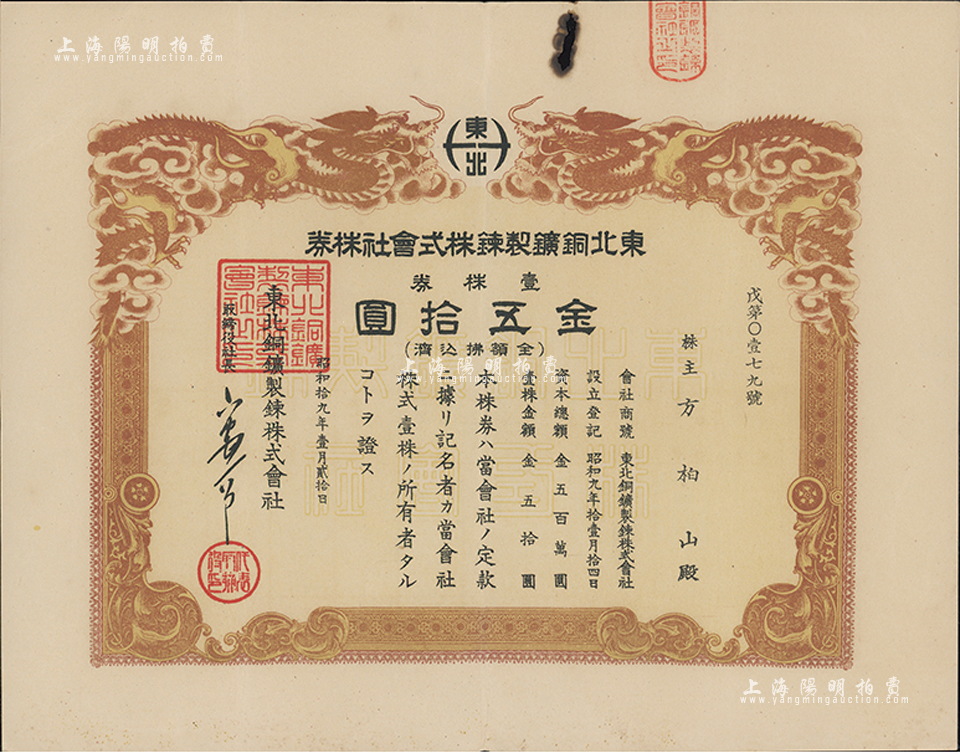 上海陽明拍賣
www.yangmingauction.com
東北
東北銅鑛製鍊株式會社株券
壹株券
金五拾圓
(全額拂込濟)
戊第〇壹七九號
株主 方柏山殿
會社商號 東北銅鑛製鍊株式會社
設立登記 昭和九年拾壹月拾四日
資本總額 金五百萬圓
壹株金額 金五拾圓
本株券ハ當會社ノ定款
ニ據リ記名者カ當會社
株式壹株ノ所有者タル
コトヲ證ス
昭和拾九年壹月貳拾日
東北銅鑛製鍊株式會社
取締役社長
東北銅鑛製鍊株式會社
上海陽明拍賣
www.yangmingauction.com
上海陽明拍賣
www.yangmingauction.com